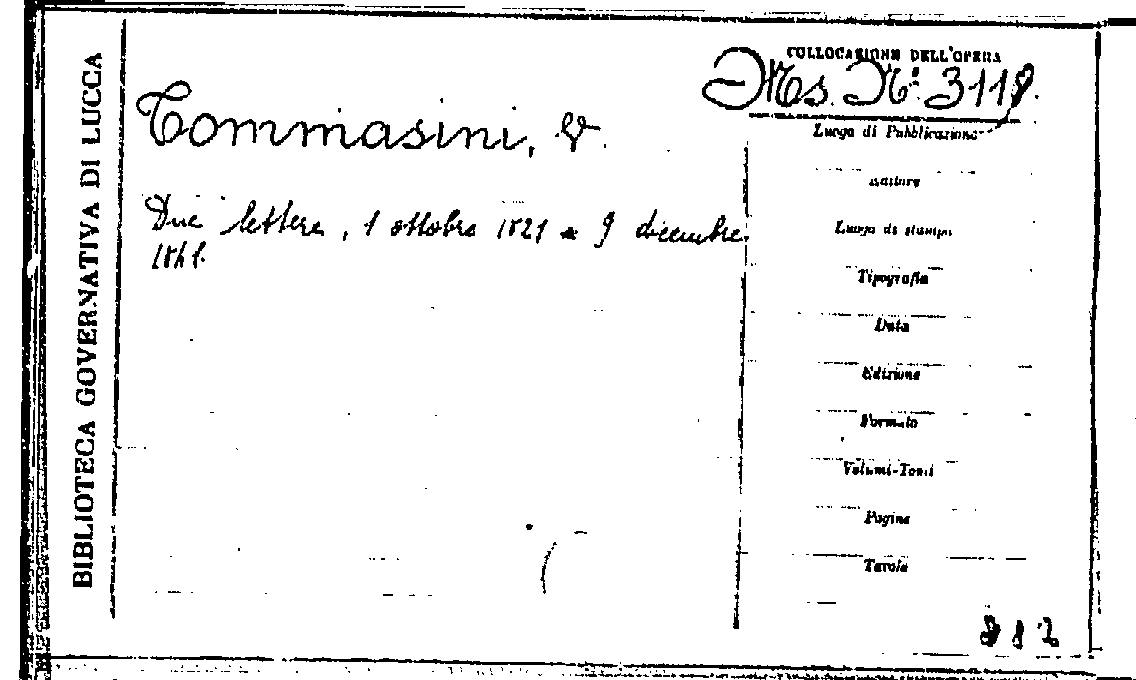 BIBLIOTECA GOVERNATIVA DI LUCCA
COLLOCAZIONE DELL'OPERA
Ms. N.º 3118.
Tommasini, V.
Due lettere, 1 ottobre 1821 e 9 dicembre
Luogo di Pubblicazione
Editore
Luogo di stampa
Tipografia
Data
Edizione
Formato
Volumi-Tomi
Pagine
Tavole